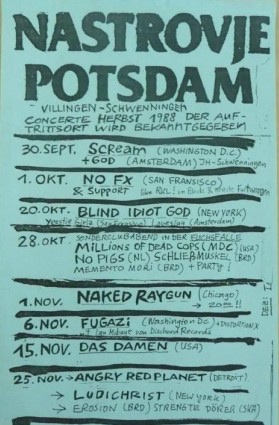 NASTROVJE
POTSDAM
VILLINGEN-SCHWENNINGEN
CONCERTE HERBST 1988 DER AUF-
TRITTSORT WIRD BEKANNTGEGEBEN
30. SEPT. SCREAM (WASHINGTON D.C.)
+ GOD (AMSTERDAM) JH-Schwenningen
1. OKT. NO FX (SAN FRANSISCO)
& SUPPORT
20. OKT. BLIND IDIOT GOD (NEW YORK)
Yeastie Girls (San Francisco) (Amsterdam)
28. OKT. SONDERCLUBABEND IN DER
MILLIONS OF DEAD COPS (MDC) (USA)
NO PIGS (NL) SCHLIEßMUSKEL (BRD)
MEMENTO MORI (BRD) + PARTY!
1. NOV. NAKED RAYGUN (Chicago)
6. NOV. FUGAZI (Washington Dc.) + DISTORTION X
15. NOV. DAS DAMEN (USA)
25. NOV. → ANGRY RED PLANET (DETROIT)
→ LUDICHRIST (NEW YORK)
→ EROSION (BRD)